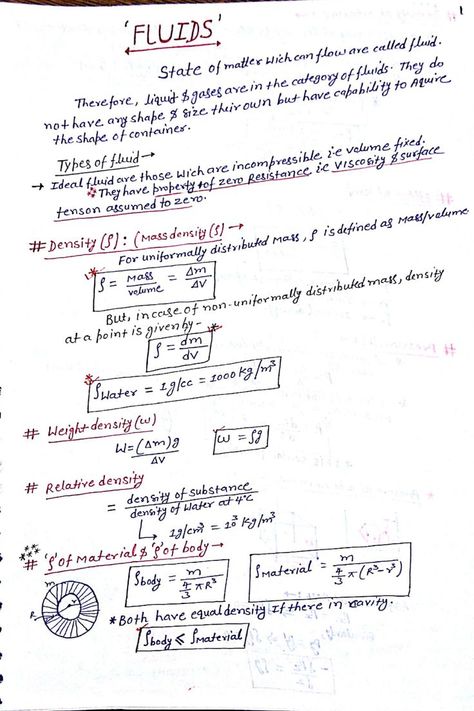 1
'FLUIDS'
State of matter wich can flow are called fluid.
Therefore, liquid & gases are in the category of fluids. They do
not have any shape & size their own but have capability to Aquire
the shape of container.
Types of fluid →
→ Ideal fluid are those wich are incompressible i.e volume fixed.
* They have property of zero Resistance i.e Viscosity & surface
tenson assumed to zero.
# Density (ρ) : (Mass density (ρ) →
For uniformly distributed Mass, ρ is defined as Mass/volume
* ρ = Mass/volume = Δm/ΔV
But, in case of non-uniformally distributed mass, density
at a point is given by -
ρ = dm/dv *
* ρwater = 1g/cc = 1000 kg/m³
# Weight density (w)
W = (Δm)g/ΔV   ω = ρg
# Relative density
= density of substance/density of water at 4°C
↳ 1g/cm³ = 10³ kg/m³
# 'ρ' of Material & 'ρ' of body →
ρbody = m / 4/3 πR³   ρMaterial = m / 4/3 π(R³-r³)
m
R
r
* Both have equal density If there in cavity.
ρbody ≤ ρMaterial